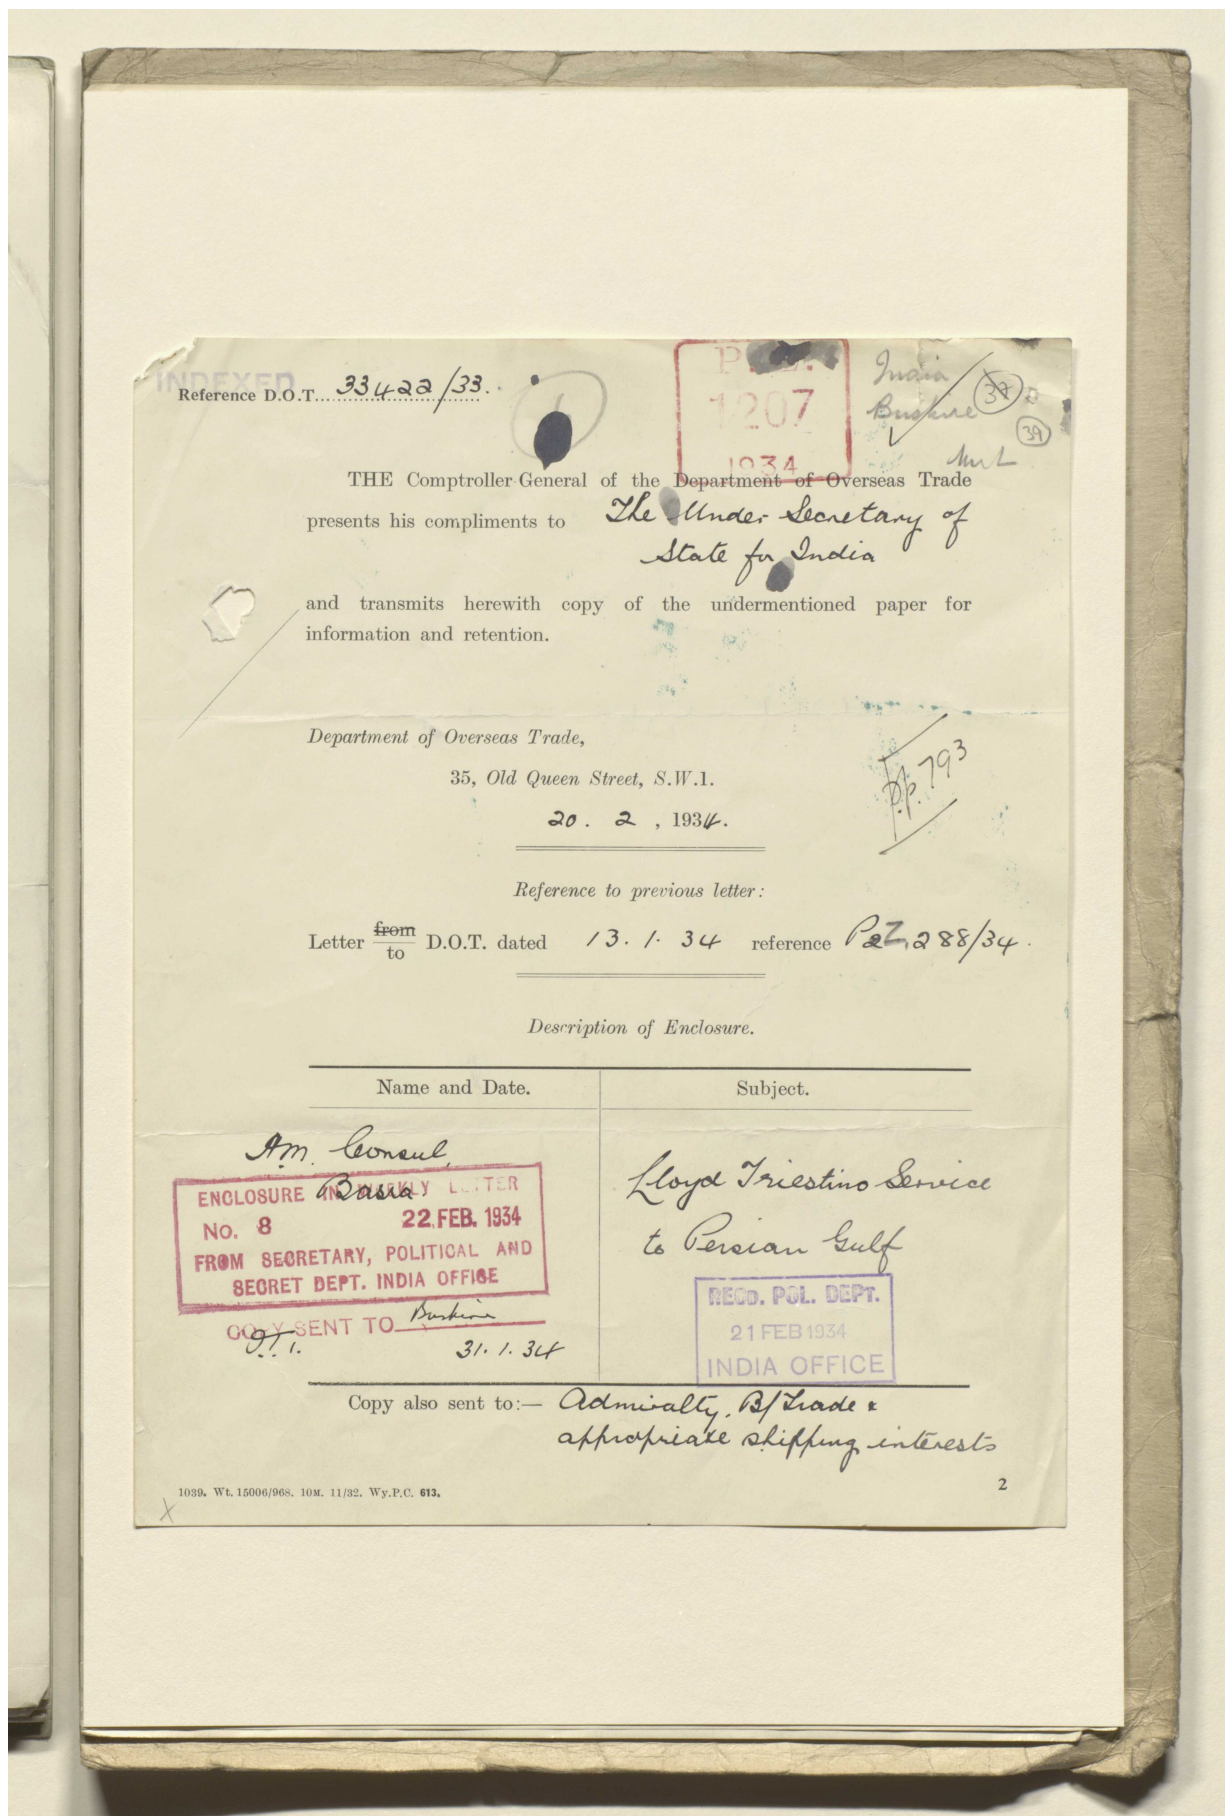 INDEXED
Reference D.O.T. 33422/33.
P.Z.
1207
1934
India
Bushire
39
THE Comptroller-General of the Department of Overseas Trade
presents his compliments to The Under Secretary of
State for India
and transmits herewith copy of the undermentioned paper for
information and retention.
Department of Overseas Trade,
35, Old Queen Street, S.W.1.
20. 2, 1934.
p.p. 793
Reference to previous letter:
Letter from/to D.O.T. dated 13. 1. 34 reference P.Z. 288/34.
Description of Enclosure.
Name and Date. Subject.
H.M. Consul,
Basra
Lloyd Triestino Service
to Persian Gulf
ENCLOSURE IN WEEKLY LETTER
No. 8 22 FEB. 1934
FROM SECRETARY, POLITICAL AND
SECRET DEPT. INDIA OFFICE
COPY SENT TO Bushire
31. 1. 34
RECD. POL. DEPT.
21 FEB 1934
INDIA OFFICE
Copy also sent to:— Admiralty, B/Trade &
appropriate shipping interests
1039. Wt. 15006/968. 10M. 11/32. Wy.P.C. 613.
2